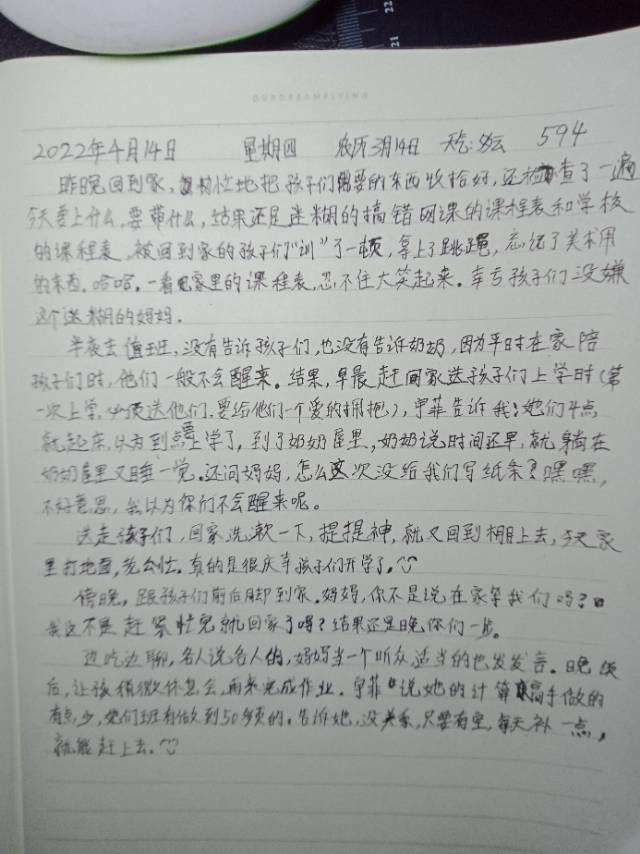 OURDREAMELTING
2022年4月14日 星期四 农历3月14日 天气:多云 594
昨晚回到家,忙地把孩子们需要的东西收拾好,还检查了一遍
今天要上什么,要带什么,结果还是迷糊的搞错网课的课程表和学校
的课程表,被回到家的孩子们“训”了一顿,拿上了跳绳,忘记了美术用
的东西。哈哈。一看见家里的课程表,忍不住大笑起来。幸亏孩子们没嫌
这个迷糊的妈妈。
半夜去值班,没有告诉孩子们,也没有告诉奶奶,因为平时在家陪
孩子们时,他们一般不会醒来。结果,早晨赶回家送孩子们上学时(第
一次上学,必须送他们,要给他们一个爱的拥抱),宇菲告诉我:她们4点
就起床,以为到点要上学了,到了奶奶屋里,奶奶说时间还早,就躺在
奶奶屋里又睡一觉。还问妈妈,怎么这次没给我们写纸条?嘿嘿,
不好意思,我以为你们不会醒来呢。
送走孩子们,回家洗漱一下,提提神,就又回到棚上去,今天家
里打地面,筑台忙。真的是很庆幸孩子们开学了。
傍晚,跟孩子们前后脚到家。妈妈,你不是说在家等我们吗?
我这不是赶紧忙完就回家了吗?结果还是晚你们一步。
边吃边聊,各人说各人的,妈妈当一个听众适当的也发发言。晚饭
后,让孩稍微休息会,再来完成作业。宇菲说她的计算高手做的
有点少,她们班有做到50多页的。告诉她,没关系,只要有空,每天补一点,
就能赶上去。
21
22